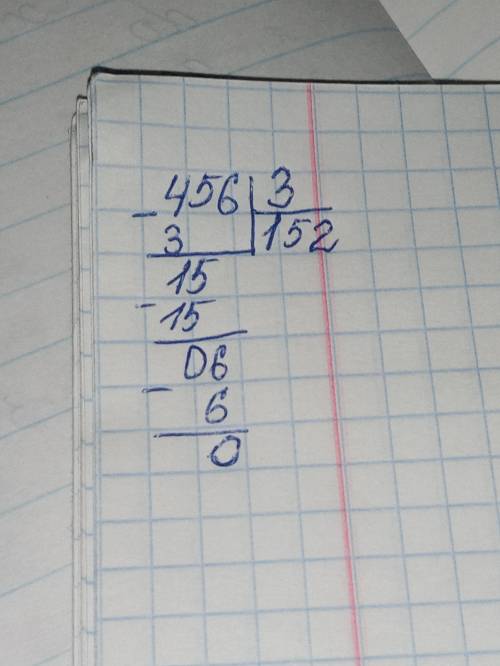 - 456 3
3 152
15
- 15
06
- 6
0